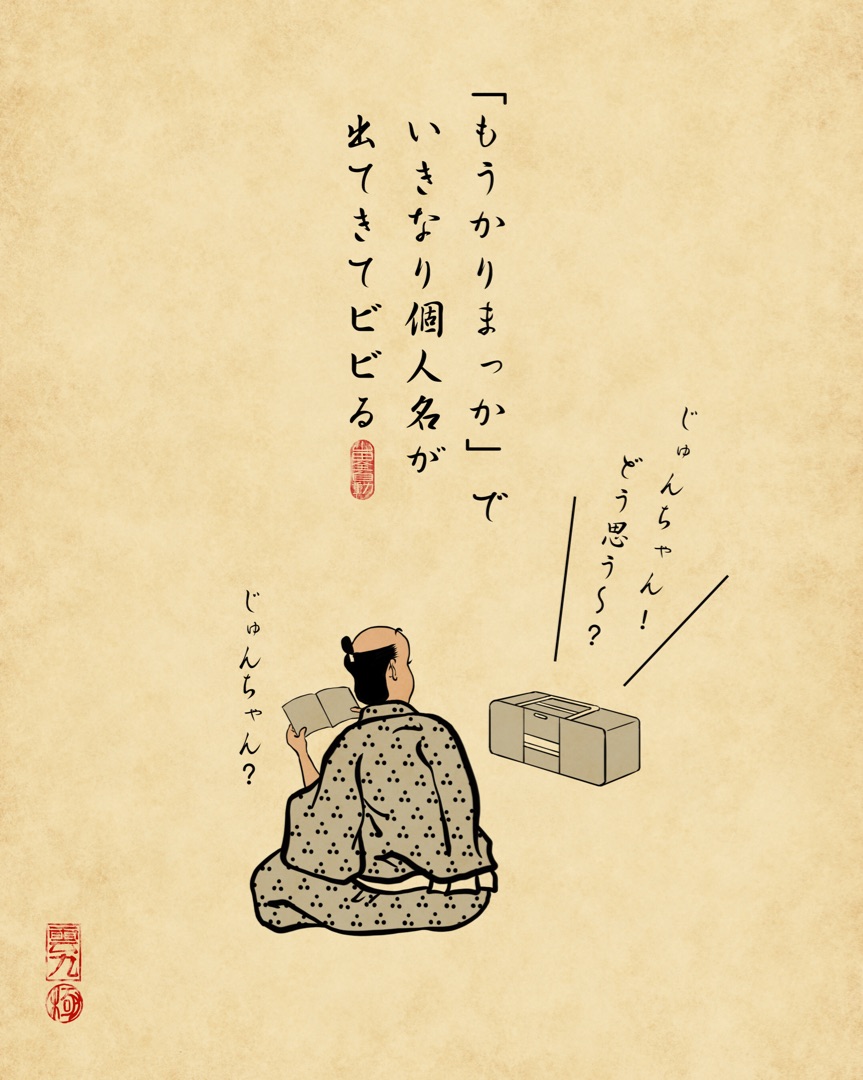 「もうかりまっか」で
いきなり個人名が
出てきてビビる
じゅんちゃん！
どう思う〜？
じゅんちゃん？